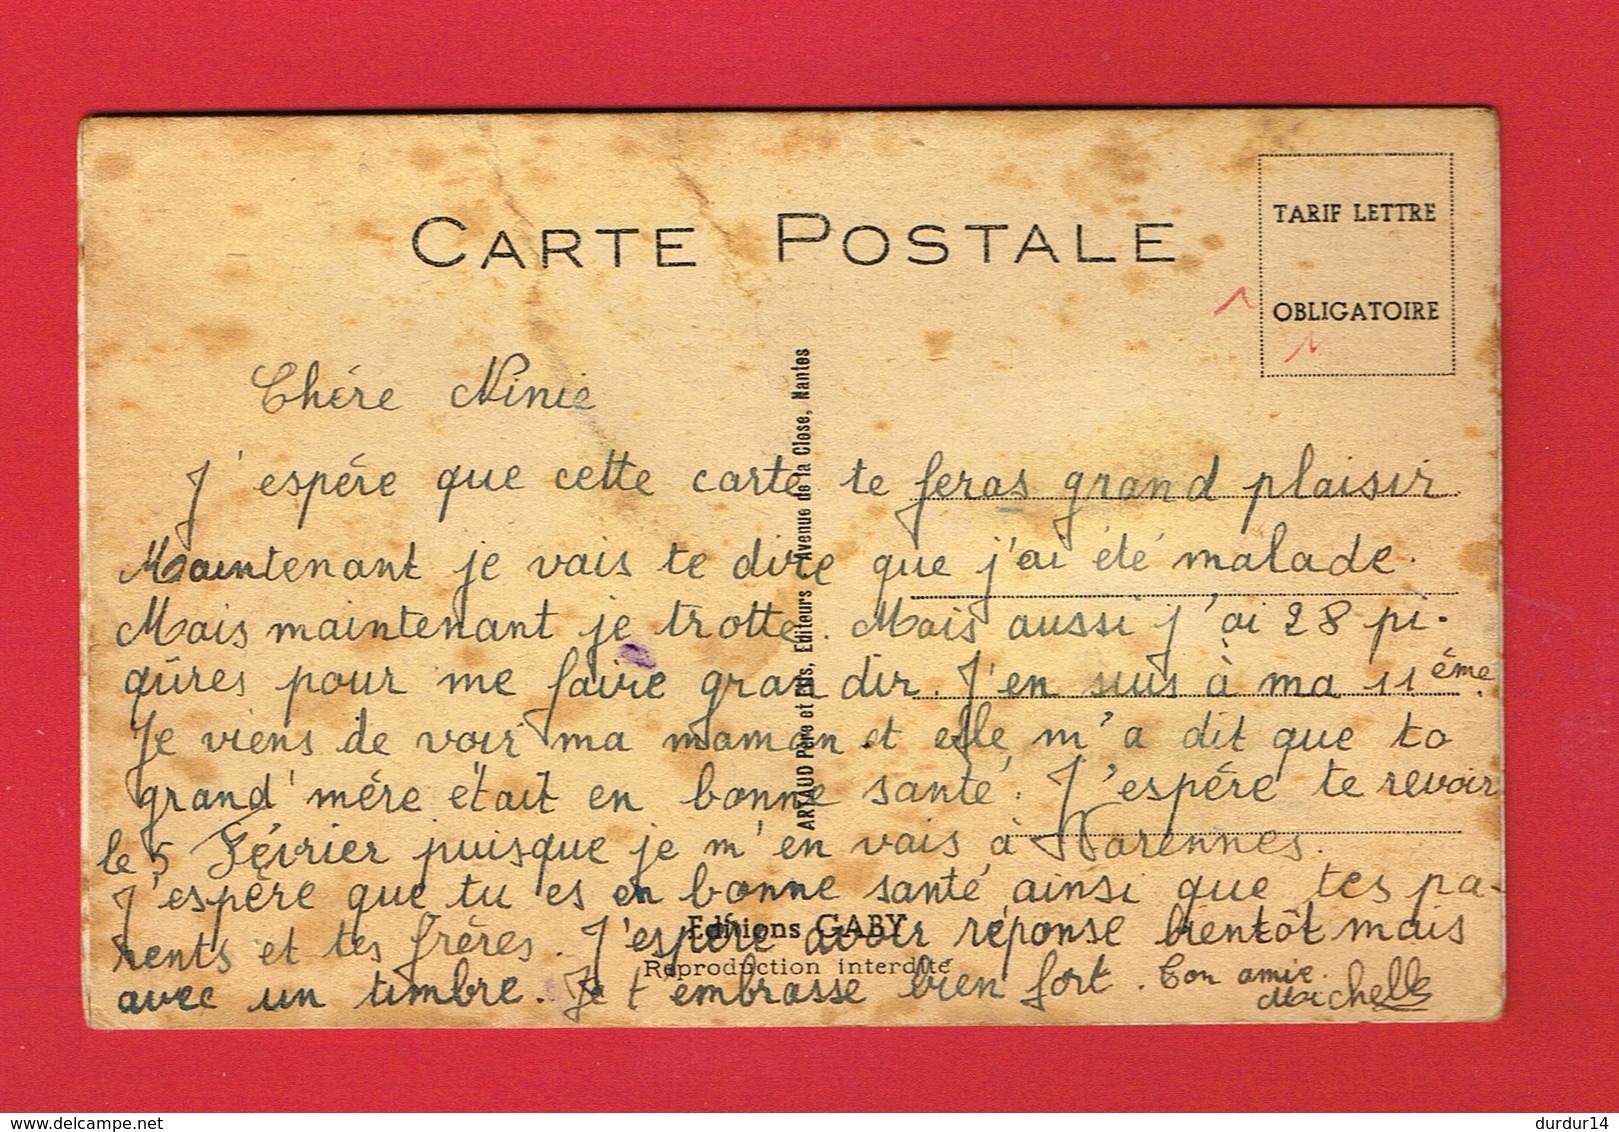 CARTE POSTALE
TARIF LETTRE
OBLIGATOIRE
Chére Ninie
J'espére que cette carte te feras grand plaisir
Maintenant je vais te dire que j'ai été malade.
Mais maintenant je trotte. Mais aussi j'ai 28 pi-
qûres pour me faire grandir. J'en suis à ma 11ème.
Je viens de voir ma maman et elle m'a dit que ta
grand'mére était en bonne santé. J'espére te revoir
le 5 Février puisque je m'en vais à Varennes.
J'espère que tu es en bonne santé ainsi que tes pa-
rents et tes frères. J'espère avoir réponse bientôt mais
avec un timbre. Je t'embrasse bien fort. Ton amie.
Michelle
ARTAUD Père et Fils, Editeurs Avenue de la Close, Nantes
Editions GABY
Reproduction interdite
delcampe.net
durdur14